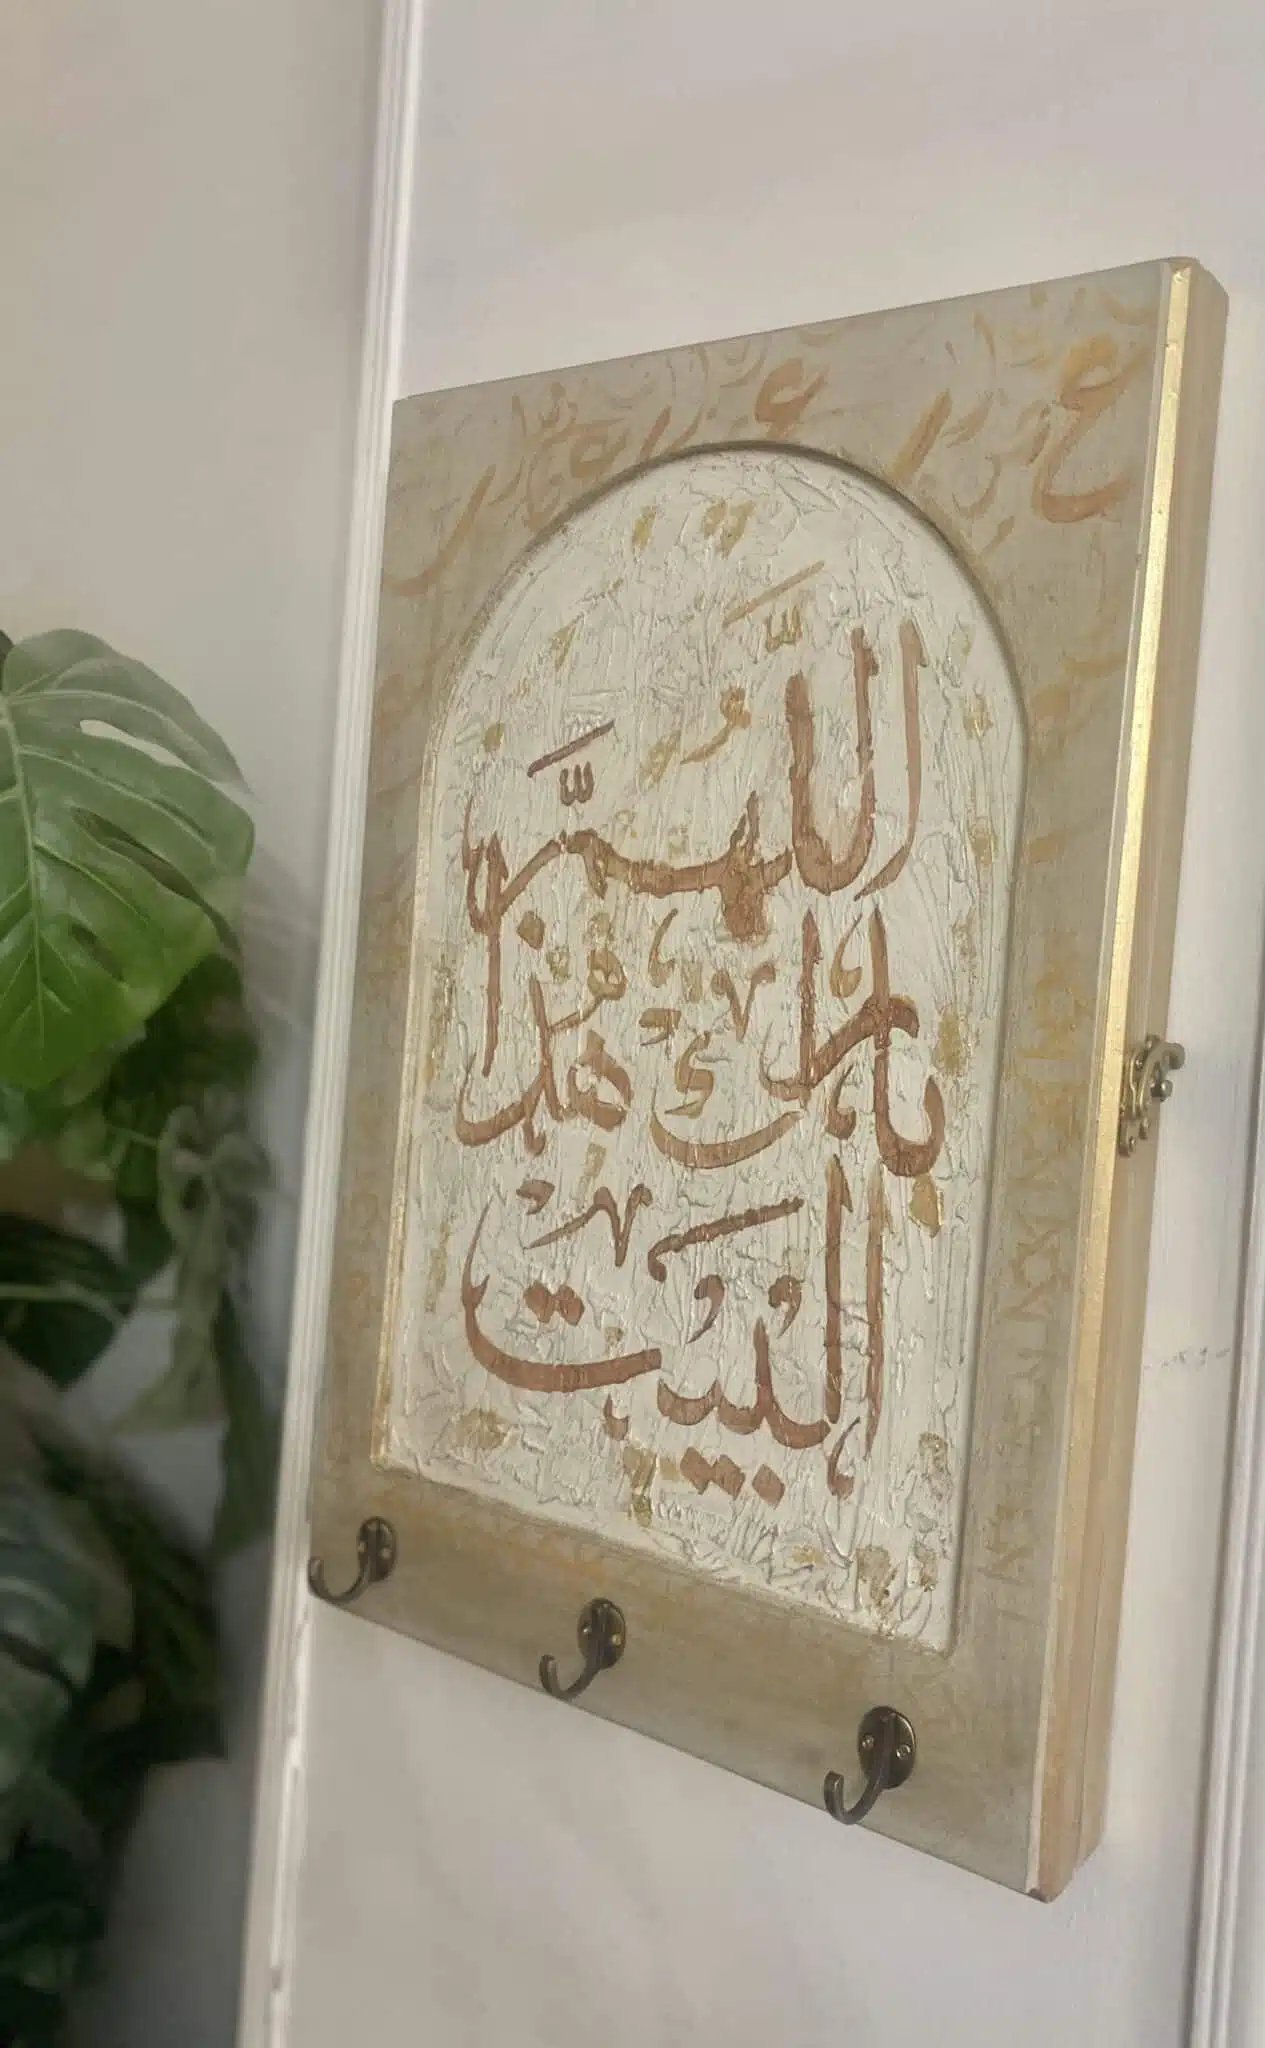 اللّهمّ
بارك هذا
البيت